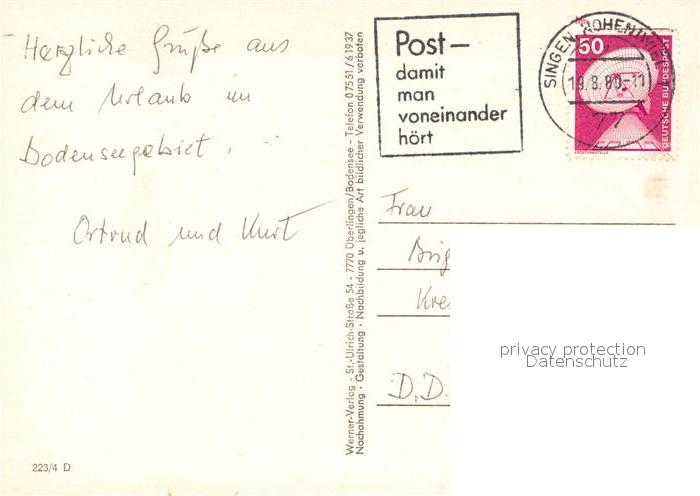 Herzliche Grüße aus
dem Urlaub im
Bodenseegebiet.
Ortrud und Kurt
223/4 D
Werner-Verlag · St.-Ulrich-Straße 54 · 7770 Überlingen/Bodensee · Telefon 07551/61937
Nachahmung · Gestaltung · Nachbildung u. jegliche Art bildlicher Verwendung verboten
Post –
damit
man
voneinander
hört
SINGEN, HOHENTWIEL
19.8.80-11
77
50
DEUTSCHE BUNDESPOST
Frau
Kre
D.D.
privacy protection
Datenschutz